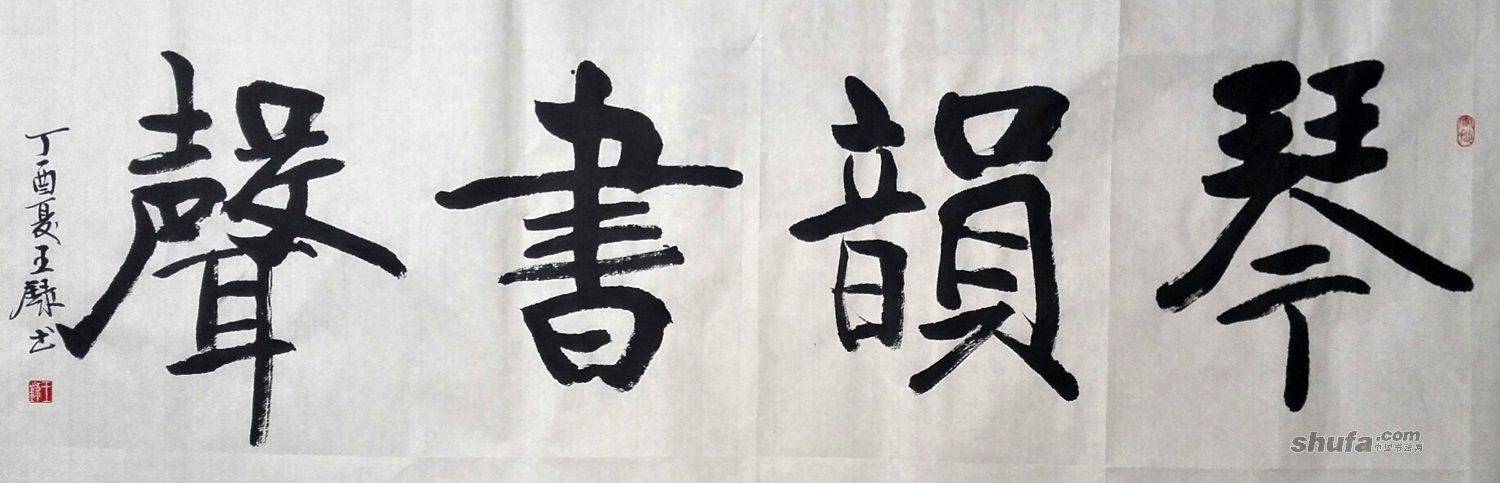 琴韻書聲
丁酉夏王騄书
shufa.com
中国书法网